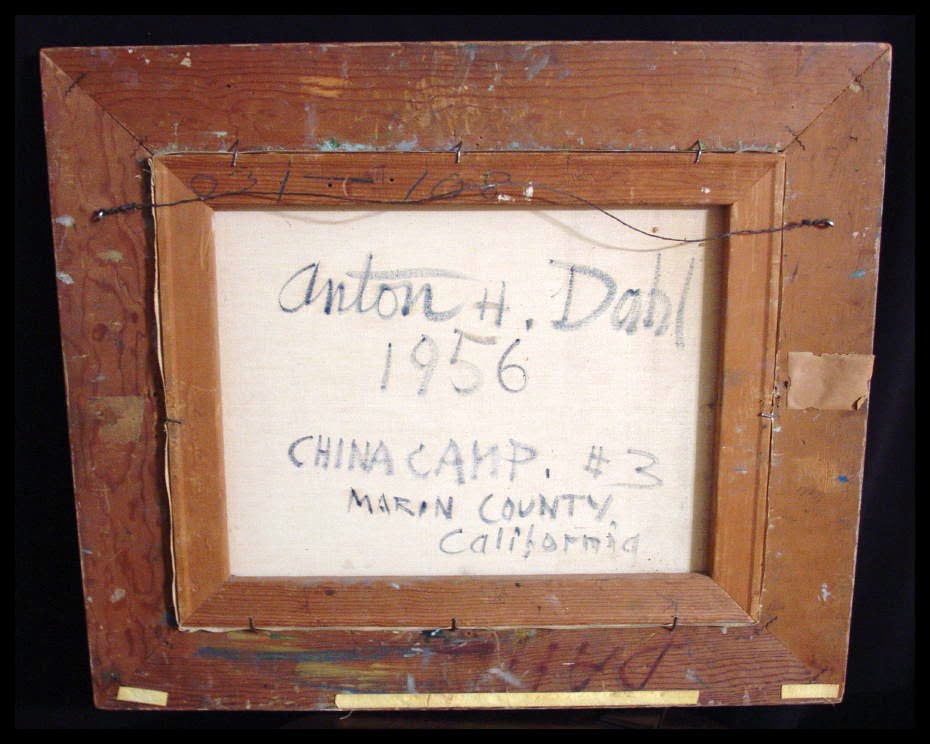 031-108
Anton H. Dahl
1956
CHINA CAMP. #3
MARIN COUNTY
California